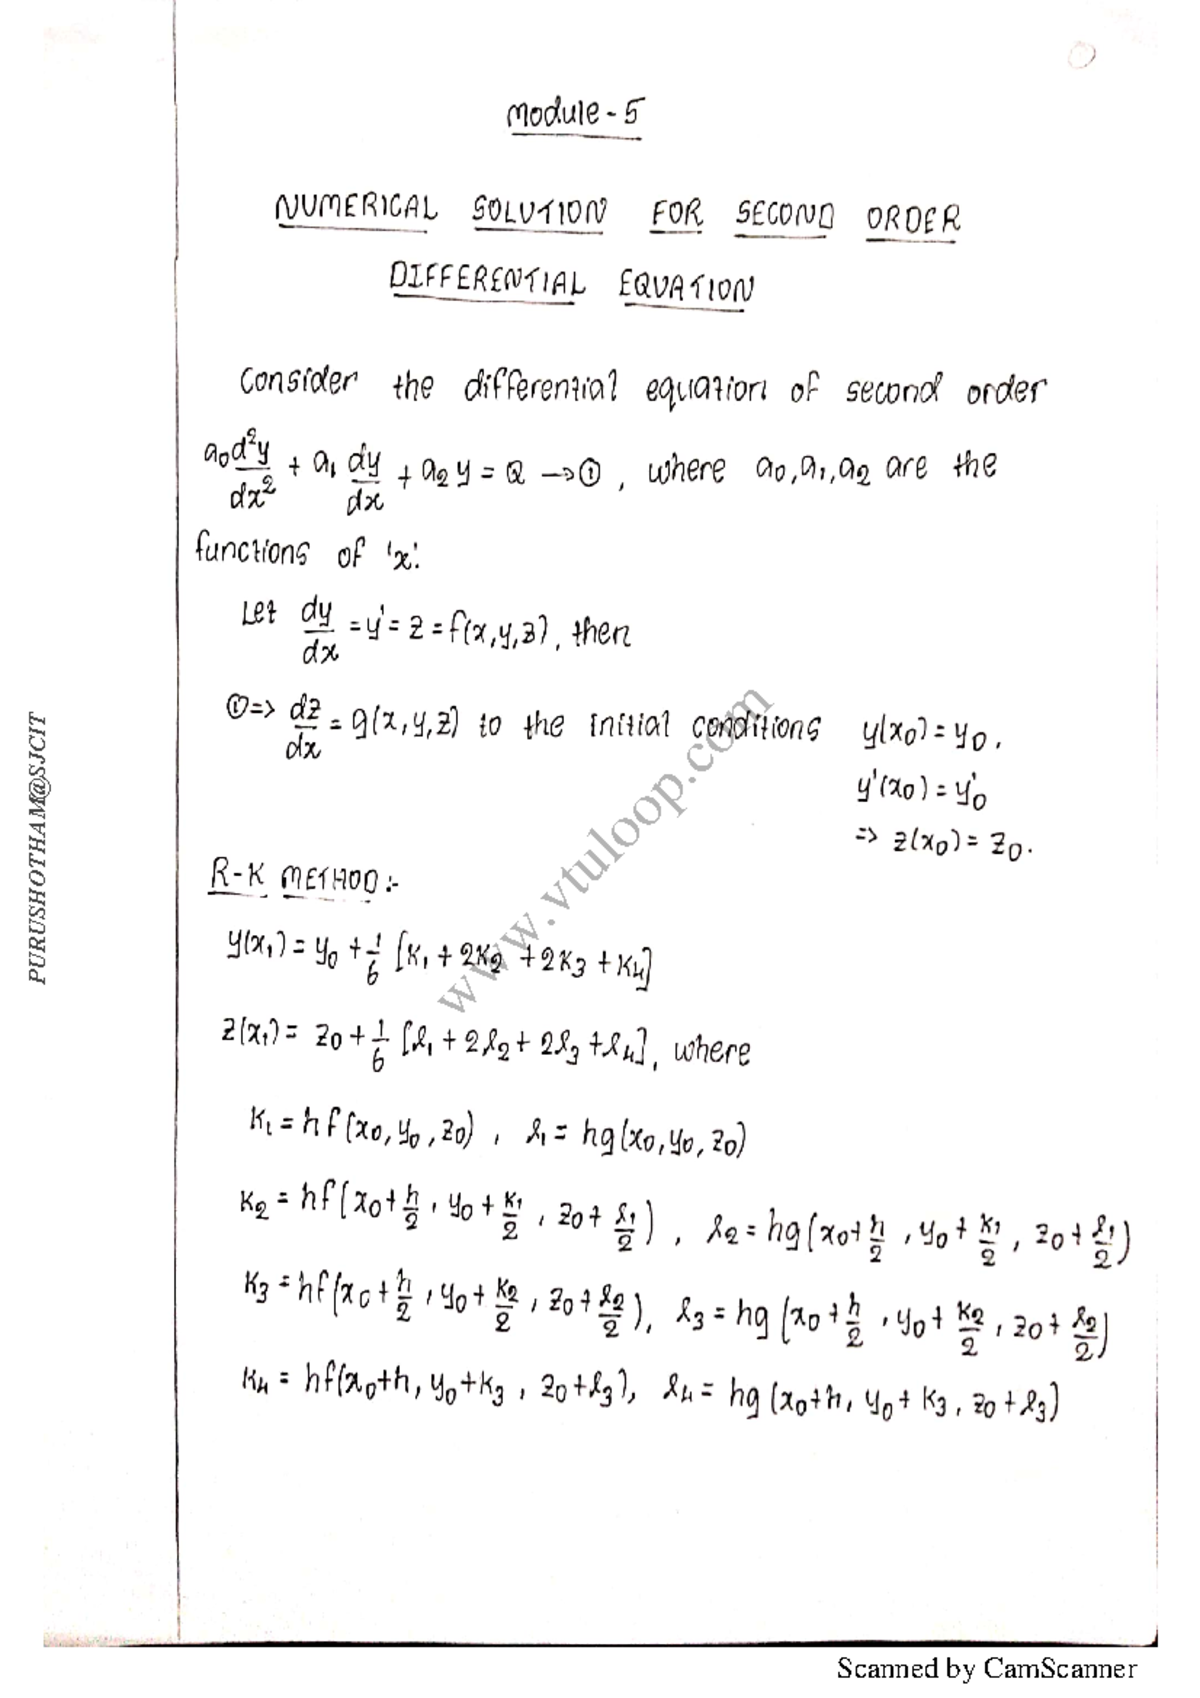 Module-5
NUMERICAL SOLUTION FOR SECOND ORDER
DIFFERENTIAL EQUATION
Consider the differential equation of second order
a₀d²y/dx² + a₁ dy/dx + a₂y = Q →①, where a₀,a₁,a₂ are the
functions of 'x'.
Let dy/dx = y' = z = f(x,y,z), then
①=> dz/dx = g(x,y,z) to the initial conditions y(x₀) = y₀.
y'(x₀) = y'₀
=> z(x₀) = z₀.
R-K METHOD:-
y(x₁) = y₀ + 1/6 [k₁ + 2k₂ + 2k₃ + k₄]
z(x₁) = z₀ + 1/6 [l₁ + 2l₂ + 2l₃ + l₄], where
k₁ = hf(x₀,y₀,z₀), l₁ = hg(x₀,y₀,z₀)
k₂ = hf(x₀+h/2, y₀+k₁/2, z₀+l₁/2), l₂ = hg(x₀+h/2, y₀+k₁/2, z₀+l₁/2)
k₃ = hf(x₀+h/2, y₀+k₂/2, z₀+l₂/2), l₃ = hg(x₀+h/2, y₀+k₂/2, z₀+l₂/2)
k₄ = hf(x₀+h, y₀+k₃, z₀+l₃), l₄ = hg(x₀+h, y₀+k₃, z₀+l₃)
PURUSHOTHAM@SJCIT
www.vtuloop.com
Scanned by CamScanner